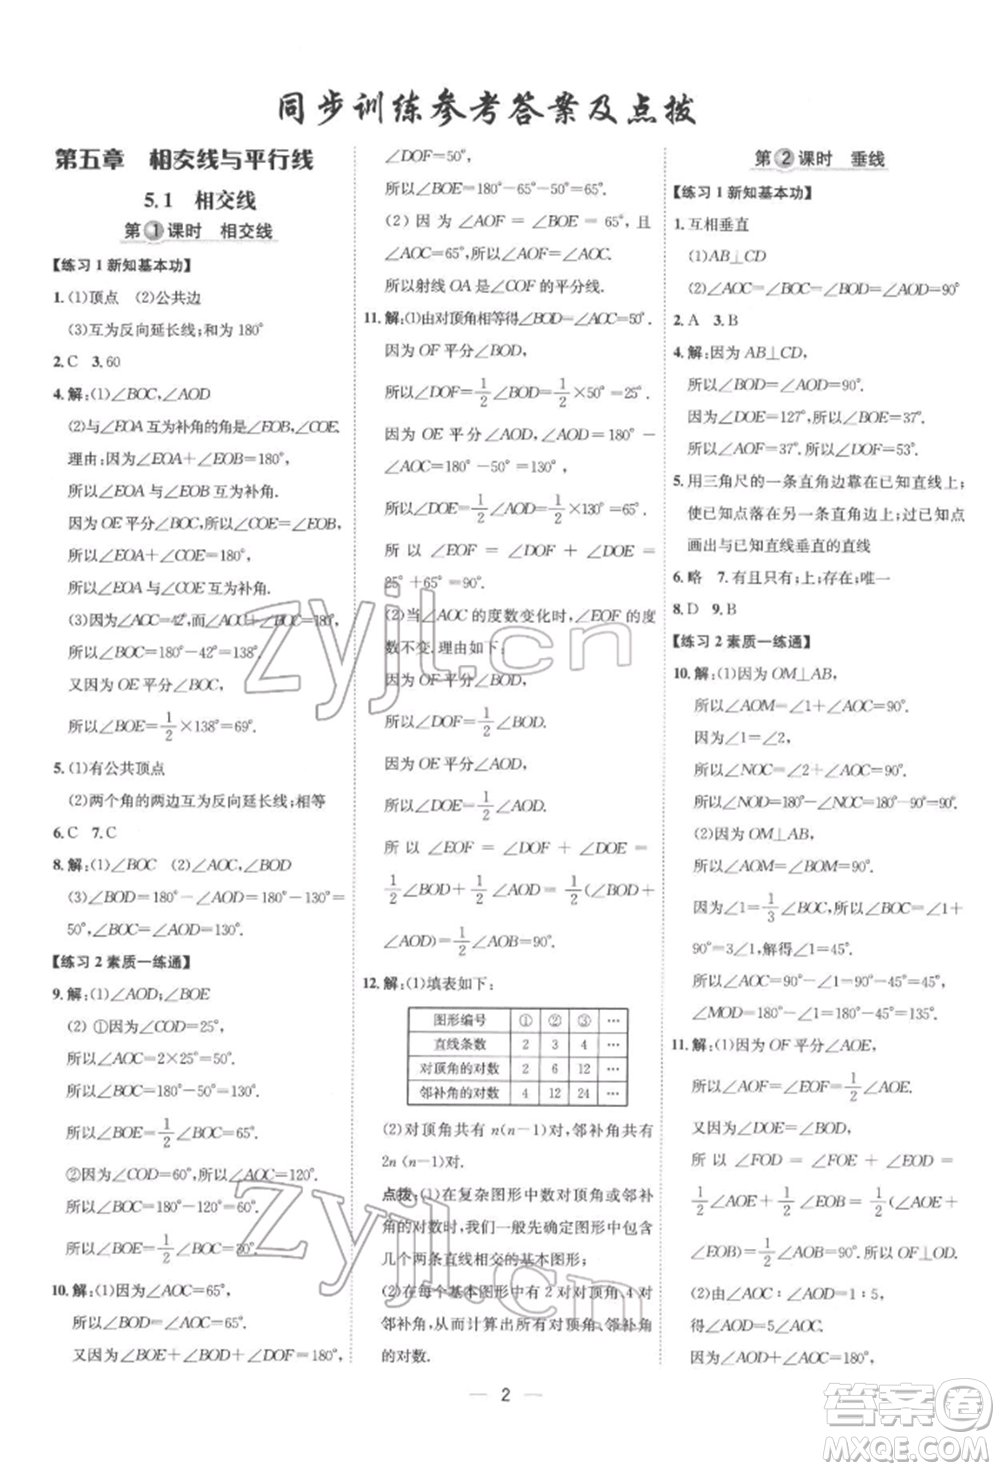 同步训练参考答案及点拨
第五章 相交线与平行线
5.1 相交线
第1课时 相交线
【练习1新知基本功】
1.(1)顶点 (2)公共边
(3)互为反向延长线;和为180°
2.C 3.60
4.解:(1)∠BOC,∠AOD
(2)与∠EOA互为补角的角是∠EOB,∠COE.
理由:∠EOA+∠EOB=180°,
所以∠EOA与∠EOB互为补角.
因为OE平分∠BOC,所以∠COE=∠EOB,
所以∠EOA+∠COE=180°,
所以∠EOA与∠COE互为补角.
(3)因为∠AOC=42°,而∠AOC+∠BOC=180°,
所以∠BOC=180°-42°=138°.
又因为OE平分∠BOC,
所以∠BOE=1/2×138°=69°.
5.(1)有公共顶点
(2)两个角的两边互为反向延长线;相等
6.C 7.C
8.解:(1)∠BOC (2)∠AOC,∠BOD
(3)∠BOD=180°-∠AOC=180°-50°=130°,∠BOC=∠AOD=50°.
【练习2素质一练通】
9.解:(1)∠AOD;∠BOE
(2)①因为∠COD=25°,
所以∠AOC=2×25°=50°,
所以∠BOC=180°-50°=130°,
所以∠BOE=1/2∠BOC=65°.
②因为∠COD=60°,所以∠AOC=120°,
所以∠BOC=180°-120°=60°,
所以∠BOE=1/2∠BOC=30°.
10.解:(1)因为∠AOC=65°,
所以∠BOD=∠AOC=65°.
又因为∠BOE+∠BOD+∠DOF=180°,
∠DOF=50°,
所以∠BOE=180°-65°-50°=65°.
(2)因为∠AOF=∠BOE=65°,∠AOC=65°,所以∠AOF=∠AOC,
所以射线OA是∠COF的平分线.
11.解:(1)由对顶角相等得∠BOD=∠AOC=50°.
因为OF平分∠BOD,
所以∠DOF=1/2∠BOD=1/2×50°=25°.
因为OE平分∠AOD,∠AOD=180°-∠BOD=180°-50°=130°,
所以∠DOE=1/2∠AOD=1/2×130°=65°.
所以∠EOF=∠DOF+∠DOE=
25°+65°=90°.
(2)当∠AOC的度数变化时,∠EOF的度
数不变.理由如下:
因为OF平分∠BOD,
所以∠DOF=1/2∠BOD.
因为OE平分∠AOD,
所以∠DOE=1/2∠AOD.
所以∠EOF=∠DOF+∠DOE=
1/2∠BOD+1/2∠AOD=1/2(∠BOD+
∠AOD)=1/2∠AOB=90°.
12.解:(1)填表如下:
图形编号 ① ② ③ …
直线条数 2 3 4 …
对顶角的对数 2 6 12 …
邻补角的对数 4 12 24 …
(2)对顶角共有n(n-1)对,邻补角共有
2n(n-1)对.
点拨:(1)在复杂图形中数对顶角或邻补
角的对数时,我们一般先确定图形中包含
几个两条直线相交的基本图形;
(2)在每个基本图形中有2对对顶角,4对
邻补角,从而计算出所有对顶角、邻补角
的对数.
第2课时 垂线
【练习1新知基本功】
1.互相垂直
(1)AB⊥CD
(2)∠AOC=∠AOD=∠BOC=∠BOD=90°
2.A 3.B
4.解:因为AB⊥CD,
所以∠BOD=∠AOD=90°.
因为∠DOE=127°,所以∠BOE=37°.
所以∠AOF=37°.所以∠DOF=53°.
5.用三角尺的一条直角边靠在已知直线上;
使已知点落在另一条直角边上;过已知点
画出与已知直线垂直的直线
6.略 7.有且只有;上;存在;唯一
8.D 9.B
【练习2素质一练通】
10.解:(1)因为OM⊥AB,
所以∠AOM=∠1+∠AOC=90°.
因为∠1=∠2,
所以∠NOC=∠2+∠AOC=90°.
所以∠NOD=180°-∠NOC=180°-90°=90°.
(2)因为OM⊥AB,
所以∠AOM=∠BOM=90°.
因为∠1=1/3∠BOC,所以∠BOC=∠1+
90°=3∠1,
所以∠1=45°.
所以∠AOC=90°-∠1=90°-45°=45°,
∠MOD=180°-∠1=180°-45°=135°.
11.解:(1)因为OF平分∠AOE,
所以∠FOE=∠AOF=1/2∠AOE.
又因为∠DOE=∠BOD=1/2∠EOB,
所以∠FOD=∠FOE+∠DOE=
1/2∠AOE+1/2∠EOB=1/2(∠AOE+
∠EOB)=1/2∠AOB=90°.所以OF⊥OD.
(2)由∠AOC∶∠AOD=1∶5,
得∠AOD=5∠AOC.
因为∠AOD+∠AOC=180°,所以
2
zyjl.cn
zyjl.cn
答案圈
MXQE.COM